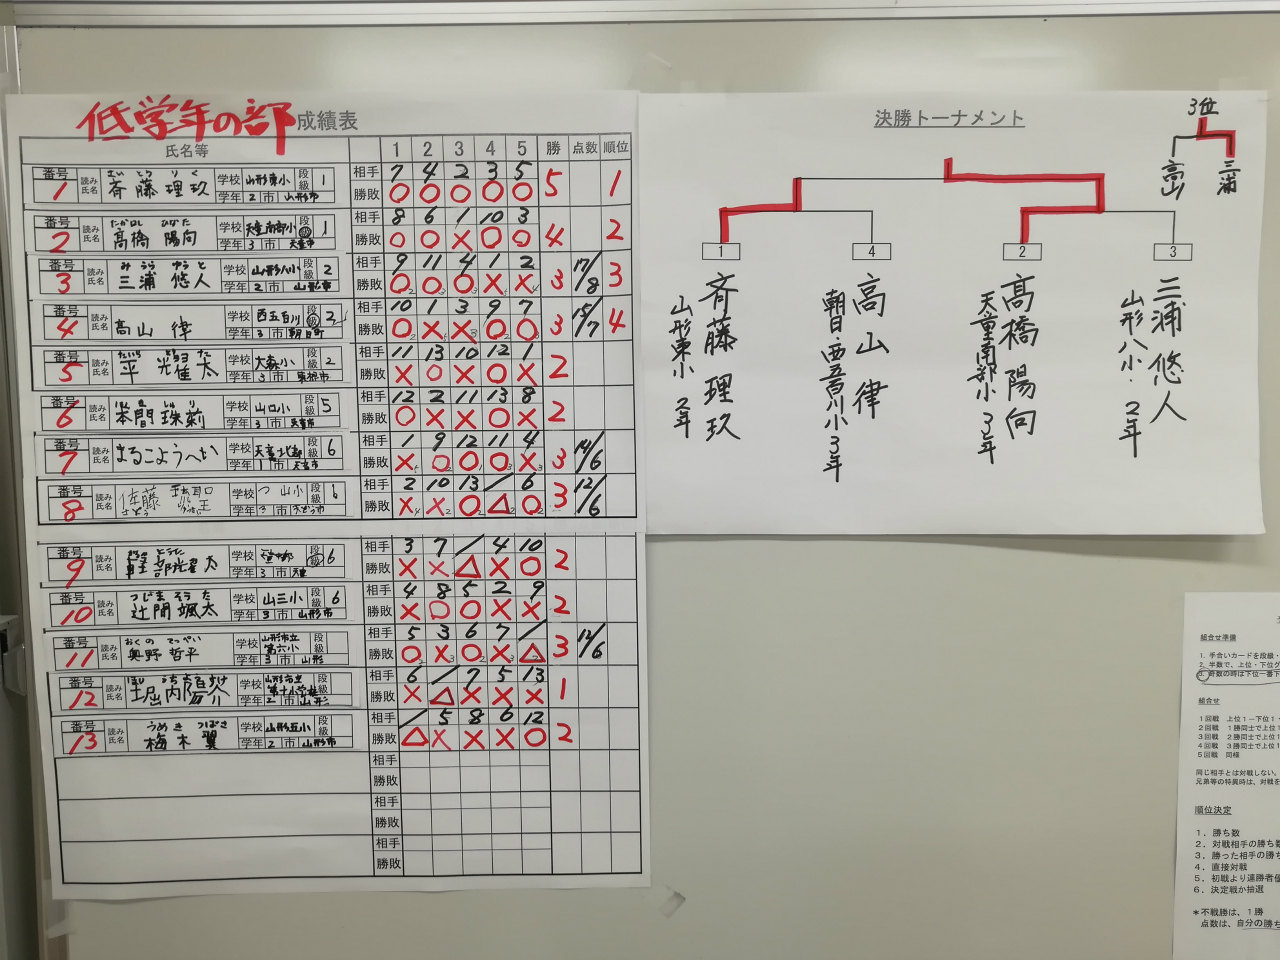 低学年の部 成績表
氏名等 1 2 3 4 5 勝 点数 順位
番号 1 読み氏名 さいとうりく 斉藤理玖 学校 山形東小 段級 1 学年 2 市 山形市
相手 7 4 2 3 5
勝敗 ○ ○ ○ ○ ○ 5 1
番号 2 読み氏名 たかはしひなた 髙橋陽向 学校 天童南部小 段級 1 学年 3 市 天童市
相手 8 6 1 10 3
勝敗 ○ ○ × ○ ○ 4 2
番号 3 読み氏名 みうらゆうと 三浦悠人 学校 山形八小 段級 2 学年 2 市 山形市
相手 9 11 4 1 2
勝敗 ○ ○ ○ × × 3 17/8 3
番号 4 読み氏名 高山律 学校 西五百川 段級 2 学年 3 市 朝日町
相手 10 1 3 9 7
勝敗 ○ × × ○ ○ 3 15/7 4
番号 5 読み氏名 平 太 学校 大森小 段級 2 学年 3 市 東根市
相手 11 13 10 12 1
勝敗 × ○ × ○ × 2
番号 6 読み氏名 本間珠莉 学校 山口小 段級 5 学年 3 市 天童市
相手 12 2 11 13 8
勝敗 ○ × × ○ × 2
番号 7 読み氏名 まるこようへい 学校 天童北部 段級 6 学年 1 市 天童市
相手 1 9 12 11 4
勝敗 × ○ ○ ○ × 3 14/6
番号 8 読み氏名 佐藤 さとう 学校 山小 段級 6 学年 市
相手 2 10 13 / 6
勝敗 × × ○ △ ○ 3 12/6
番号 9 読み氏名 太 学校 段級 6 学年 3 市
相手 3 7 / 4 10
勝敗 × × △ × ○ 2
番号 10 読み氏名 つじまそうた 辻間颯太 学校 山三小 段級 6 学年 3 市 山形市
相手 4 8 5 2 9
勝敗 × ○ ○ × × 2
番号 11 読み氏名 おくのてっぺい 奥野哲平 学校 山形市立第六小 段級 学年 3 市 山形
相手 5 3 6 7 /
勝敗 ○ × ○ × △ 3 12/6
番号 12 読み氏名 堀内 学校 山形市立第十小学校 段級 学年 2 市 山形
相手 6 / 7 5 13
勝敗 × △ × × × 1
番号 13 読み氏名 うめきつばさ 梅木翼 学校 山形五小 段級 学年 2 市 山形市
相手 / 5 8 6 12
勝敗 △ × × × ○ 2
相手
勝敗
相手
勝敗
相手
勝敗
決勝トーナメント
3位
高山 三浦
1 4 2 3
斉藤理玖
山形東小 2年
高山律
朝日・西五百川小3年
髙橋陽向
天童南部小 3年
三浦悠人
山形八小・2年
組合せ準備
1. 手合いカードを段級・
2. 半数で、上位・下位グ
3. 奇数の時は下位一番下
組合せ
1回戦 上位1－下位1・
2回戦 1勝同士で上位1
3回戦 2勝同士で上位1
4回戦 3勝同士で上位1
5回戦 同様
同じ相手とは対戦しない。
兄弟等の特異時は、対戦を
順位決定
1. 勝ち数
2. 対戦相手の勝ち数
3. 勝った相手の勝ち
4. 直接対戦
5. 初戦より連勝者優
6. 決定戦か抽選
＊不戦勝は、1勝
点数は、自分の勝ち